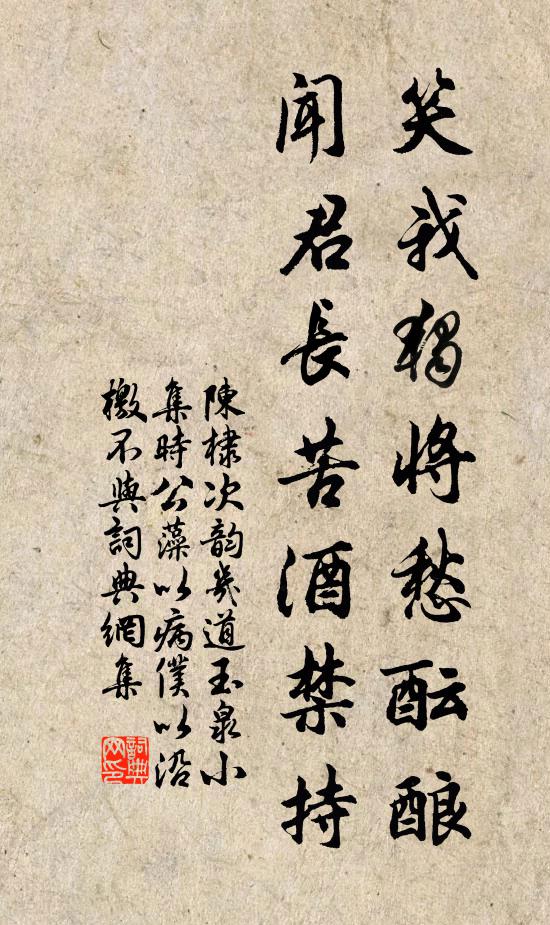 笑我獨將愁酝酿
闻君長苦酒禁持
陳棣次韵幾道玉泉小
集時公藻以病僕以沿
檄不與詞典網集
詞典网印